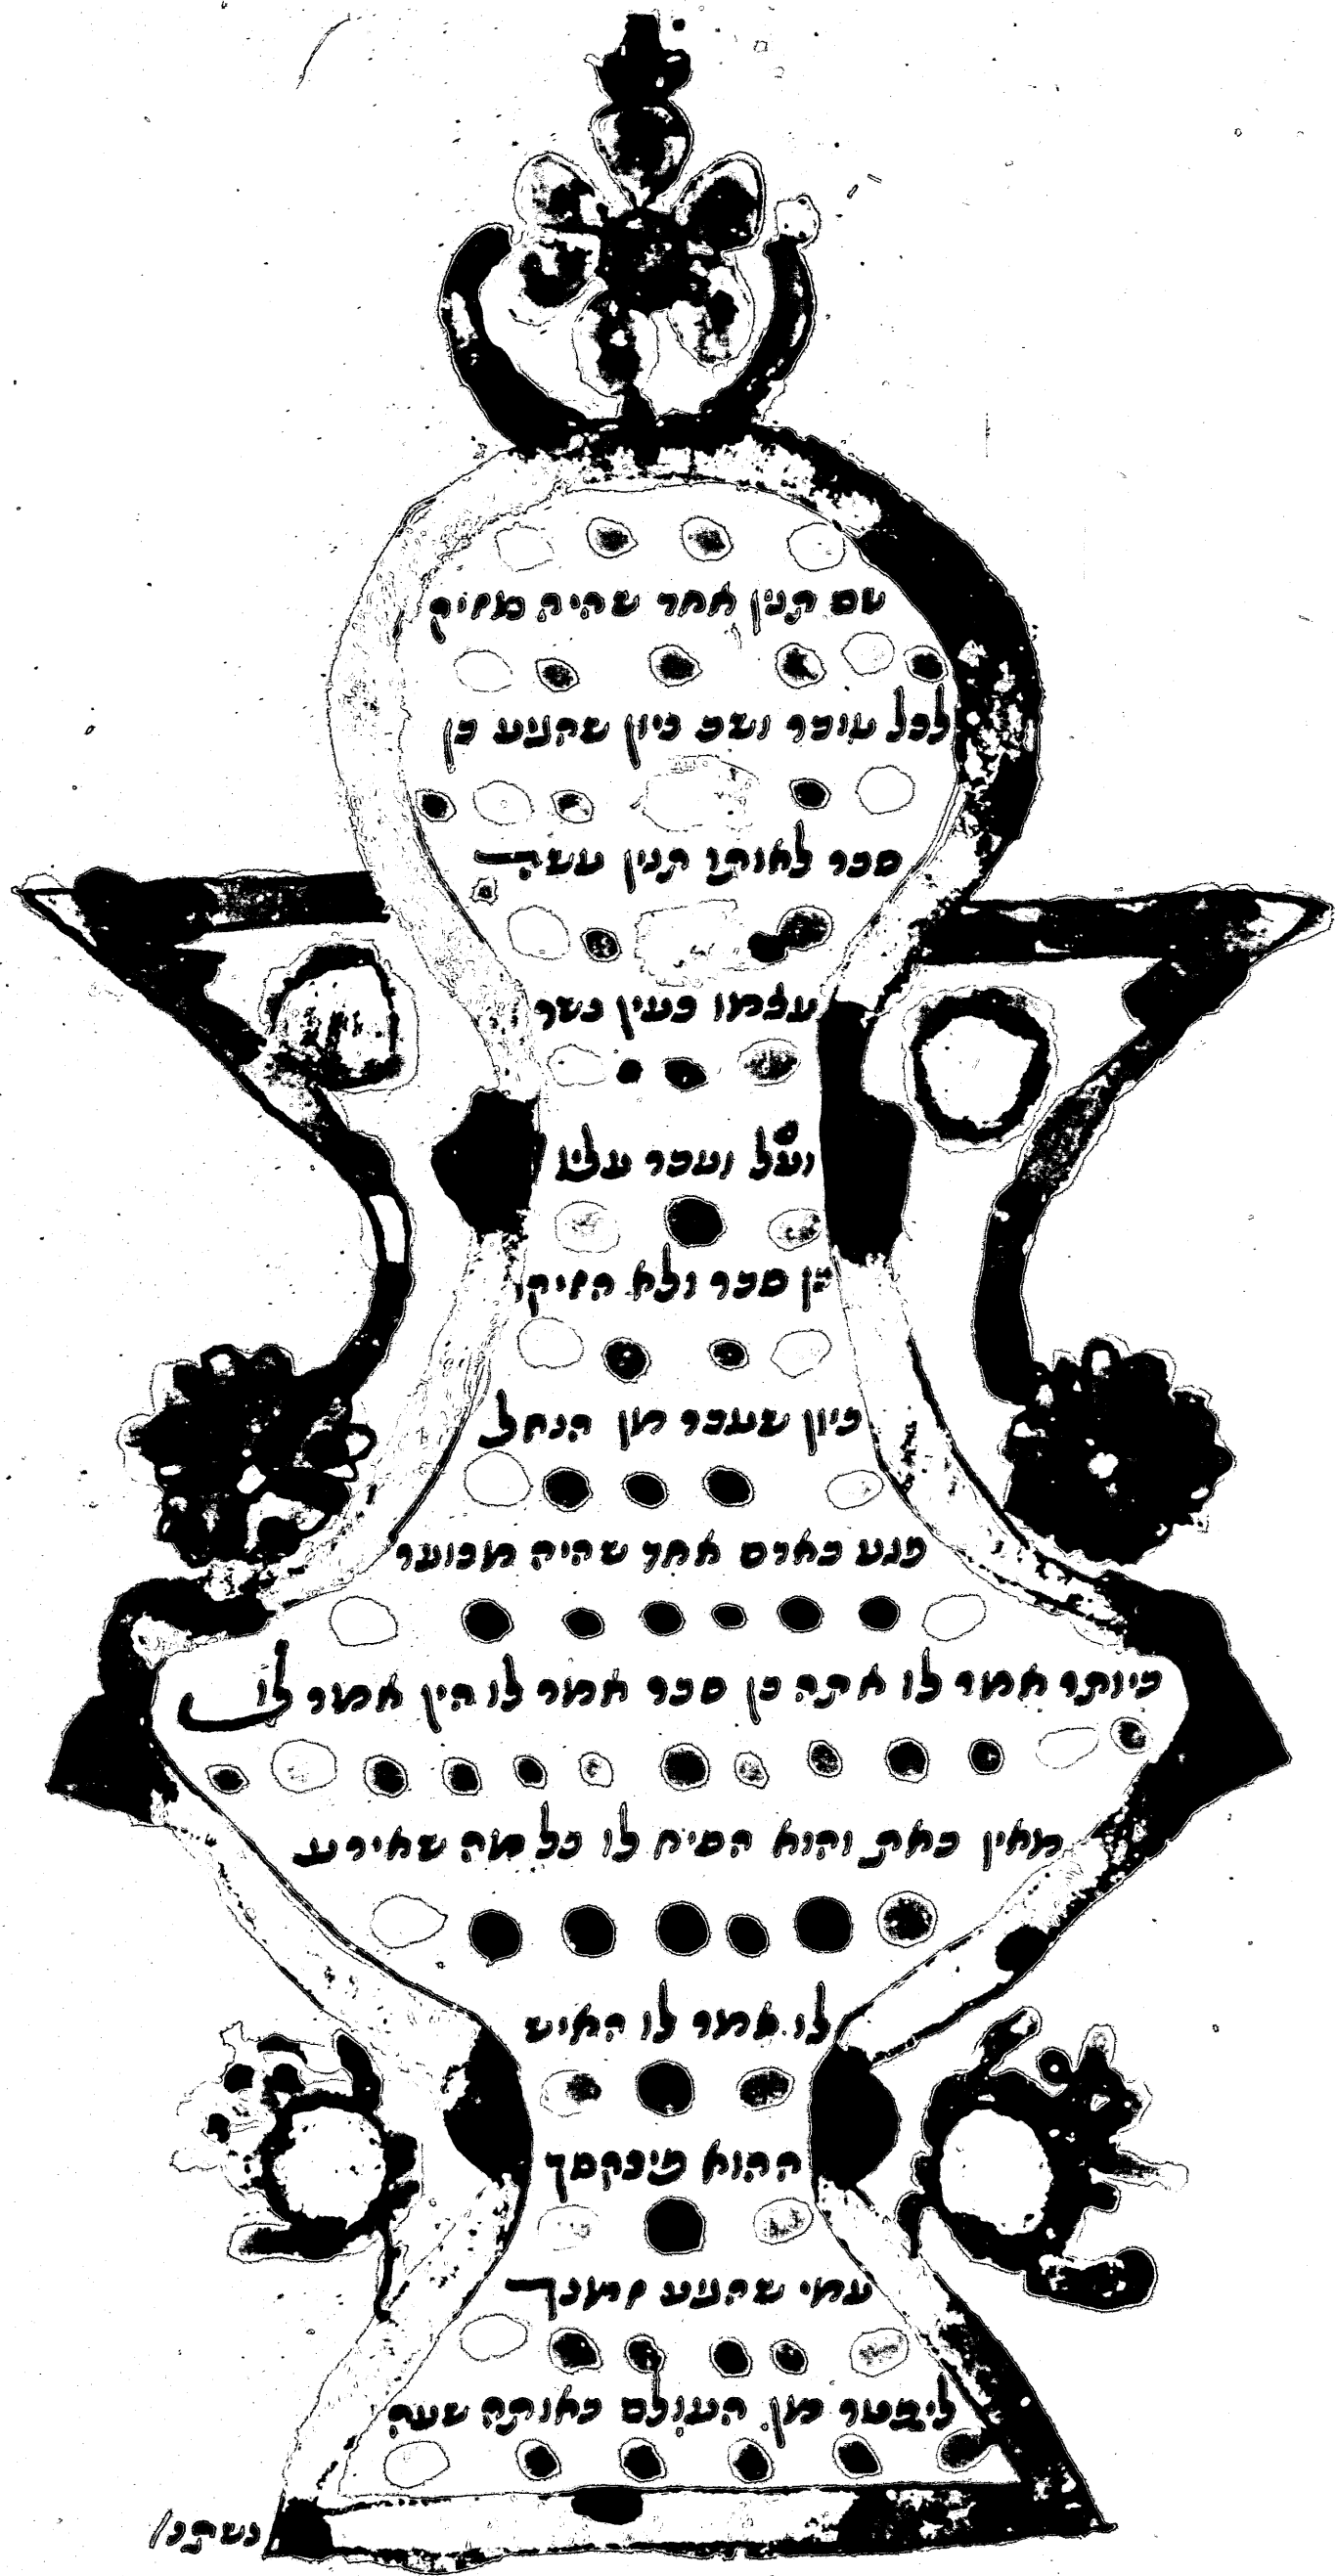 שם תנין אחד שהיה מזיק
לכל עובר ושב כיון שהגיע בן
סבר לאותו תנין עשה
עצמו כעין נשר
ועבר עליו
בן סבר ולא הזיקו
כיון שעבר מן הנחל
פגע באדם אחד שהיה מכוער
ביותר אמר לו אתה בן סבר אמר לו הין אמר לו
מאין באת והוא הסיח לו כל מה שאירע
לו אמר לו האיש
ההוא פינקסך
עמי שהגיע זמנך
ליפטר מן העולם באותה שעה
נשתנו